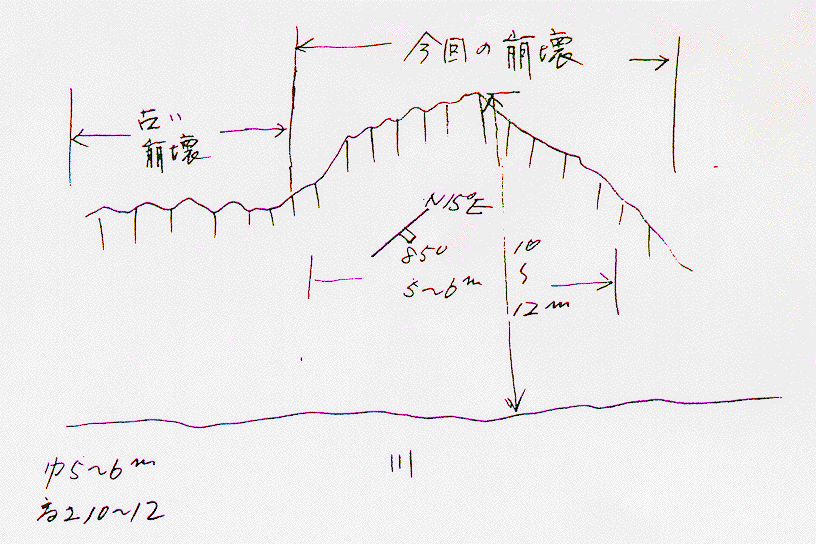 今回の崩壊
古い
崩壊
N15°E
85°
5~6m
10
〜
12m
巾5~6m
高さ10~12
川